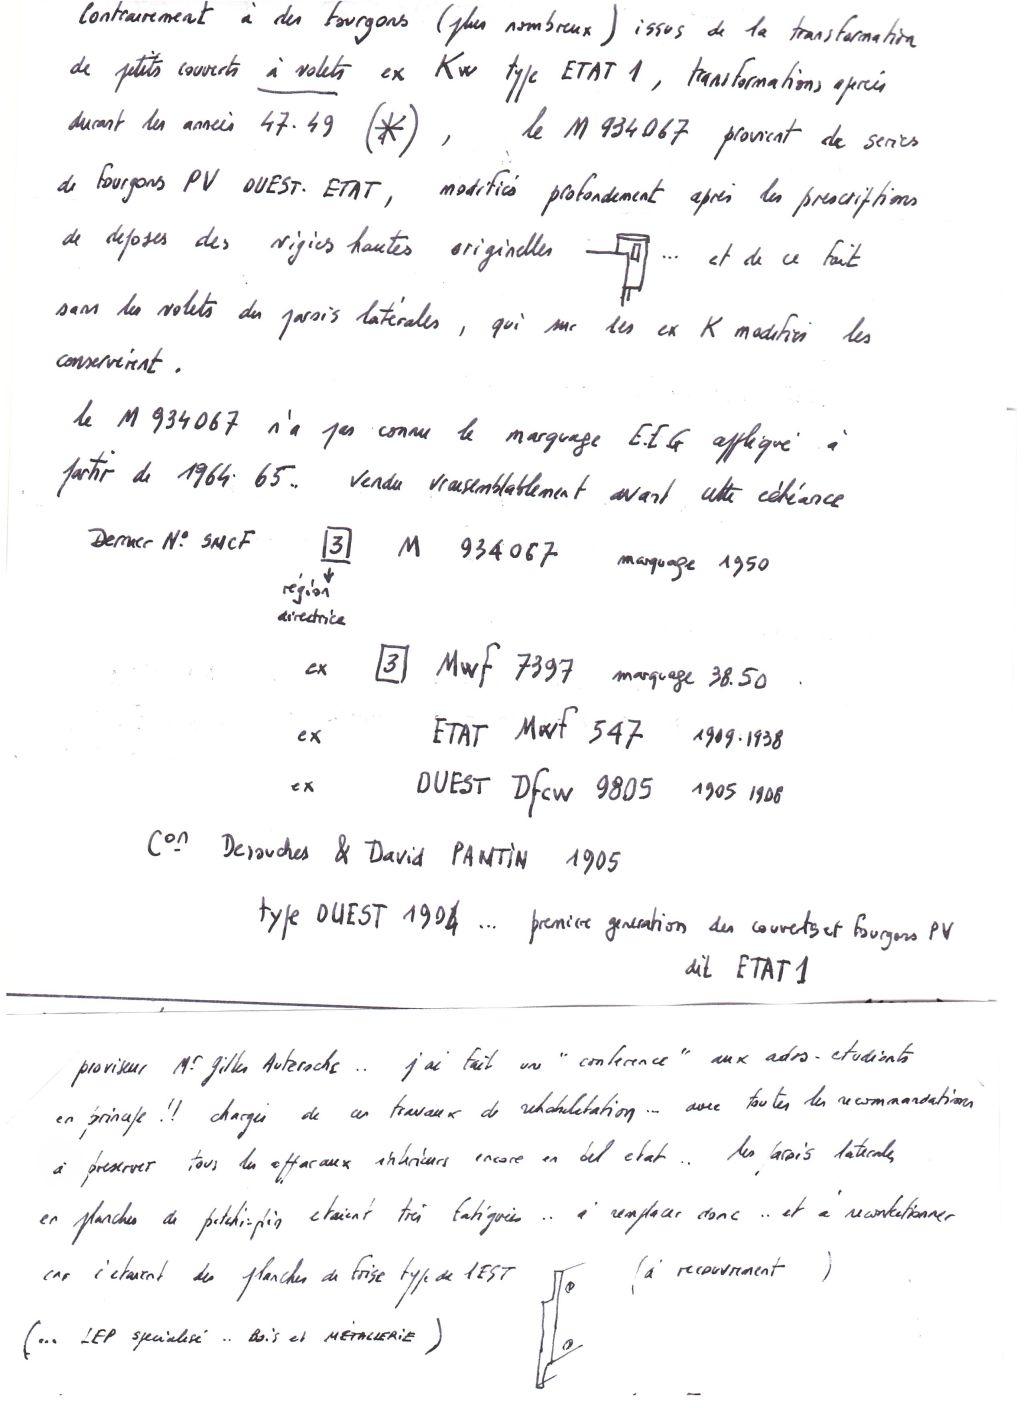 Contrairement à des fourgons (plus nombreux) issus de la transformation
de petits couverts à volets ex Kw type ETAT 1, transformations après
durant les années 47.49 (*), le M 934067 provient de series
de fourgons PV OUEST-ETAT, modifiés profondement après les prescriptions
de deposes des vigies hautes originelles ... et de ce fait
sans les volets des parois latérales, qui sur les ex K modifiés les
conservèrent.
le M 934067 n'a pas connu le marquage E.E.G appliqué à
partir de 1964-65.. vendu vraisemblablement avant cette échéance
Dernier N° SNCF 3 M 934067 marquage 1950
région
directrice
ex 3 Mwf 7397 marquage 38.50
ex ETAT Mwf 547 1909-1938
ex OUEST Dfcw 9805 1905 1908
Con Desouches & David PANTIN 1905
type OUEST 1904 ... premiere generation des couverts et fourgons PV
dit ETAT 1
proviseur Mr Gilles Autzroche .. j'ai fait un "conference" aux ados-etudiants
en principe !! chargés de ces travaux de rehabilitation... avec toutes les recommandations
à preserver tous les apparaux interieurs encore en bel etat .. les parois laterales
en planches de pitchi-pin etaient très fatiguées .. à remplacer donc .. et à reconfectionner
car c'etaient des planches de frise type de l'EST (à recouvrement)
(... LEP specialisé .. Bois et METALLERIE)